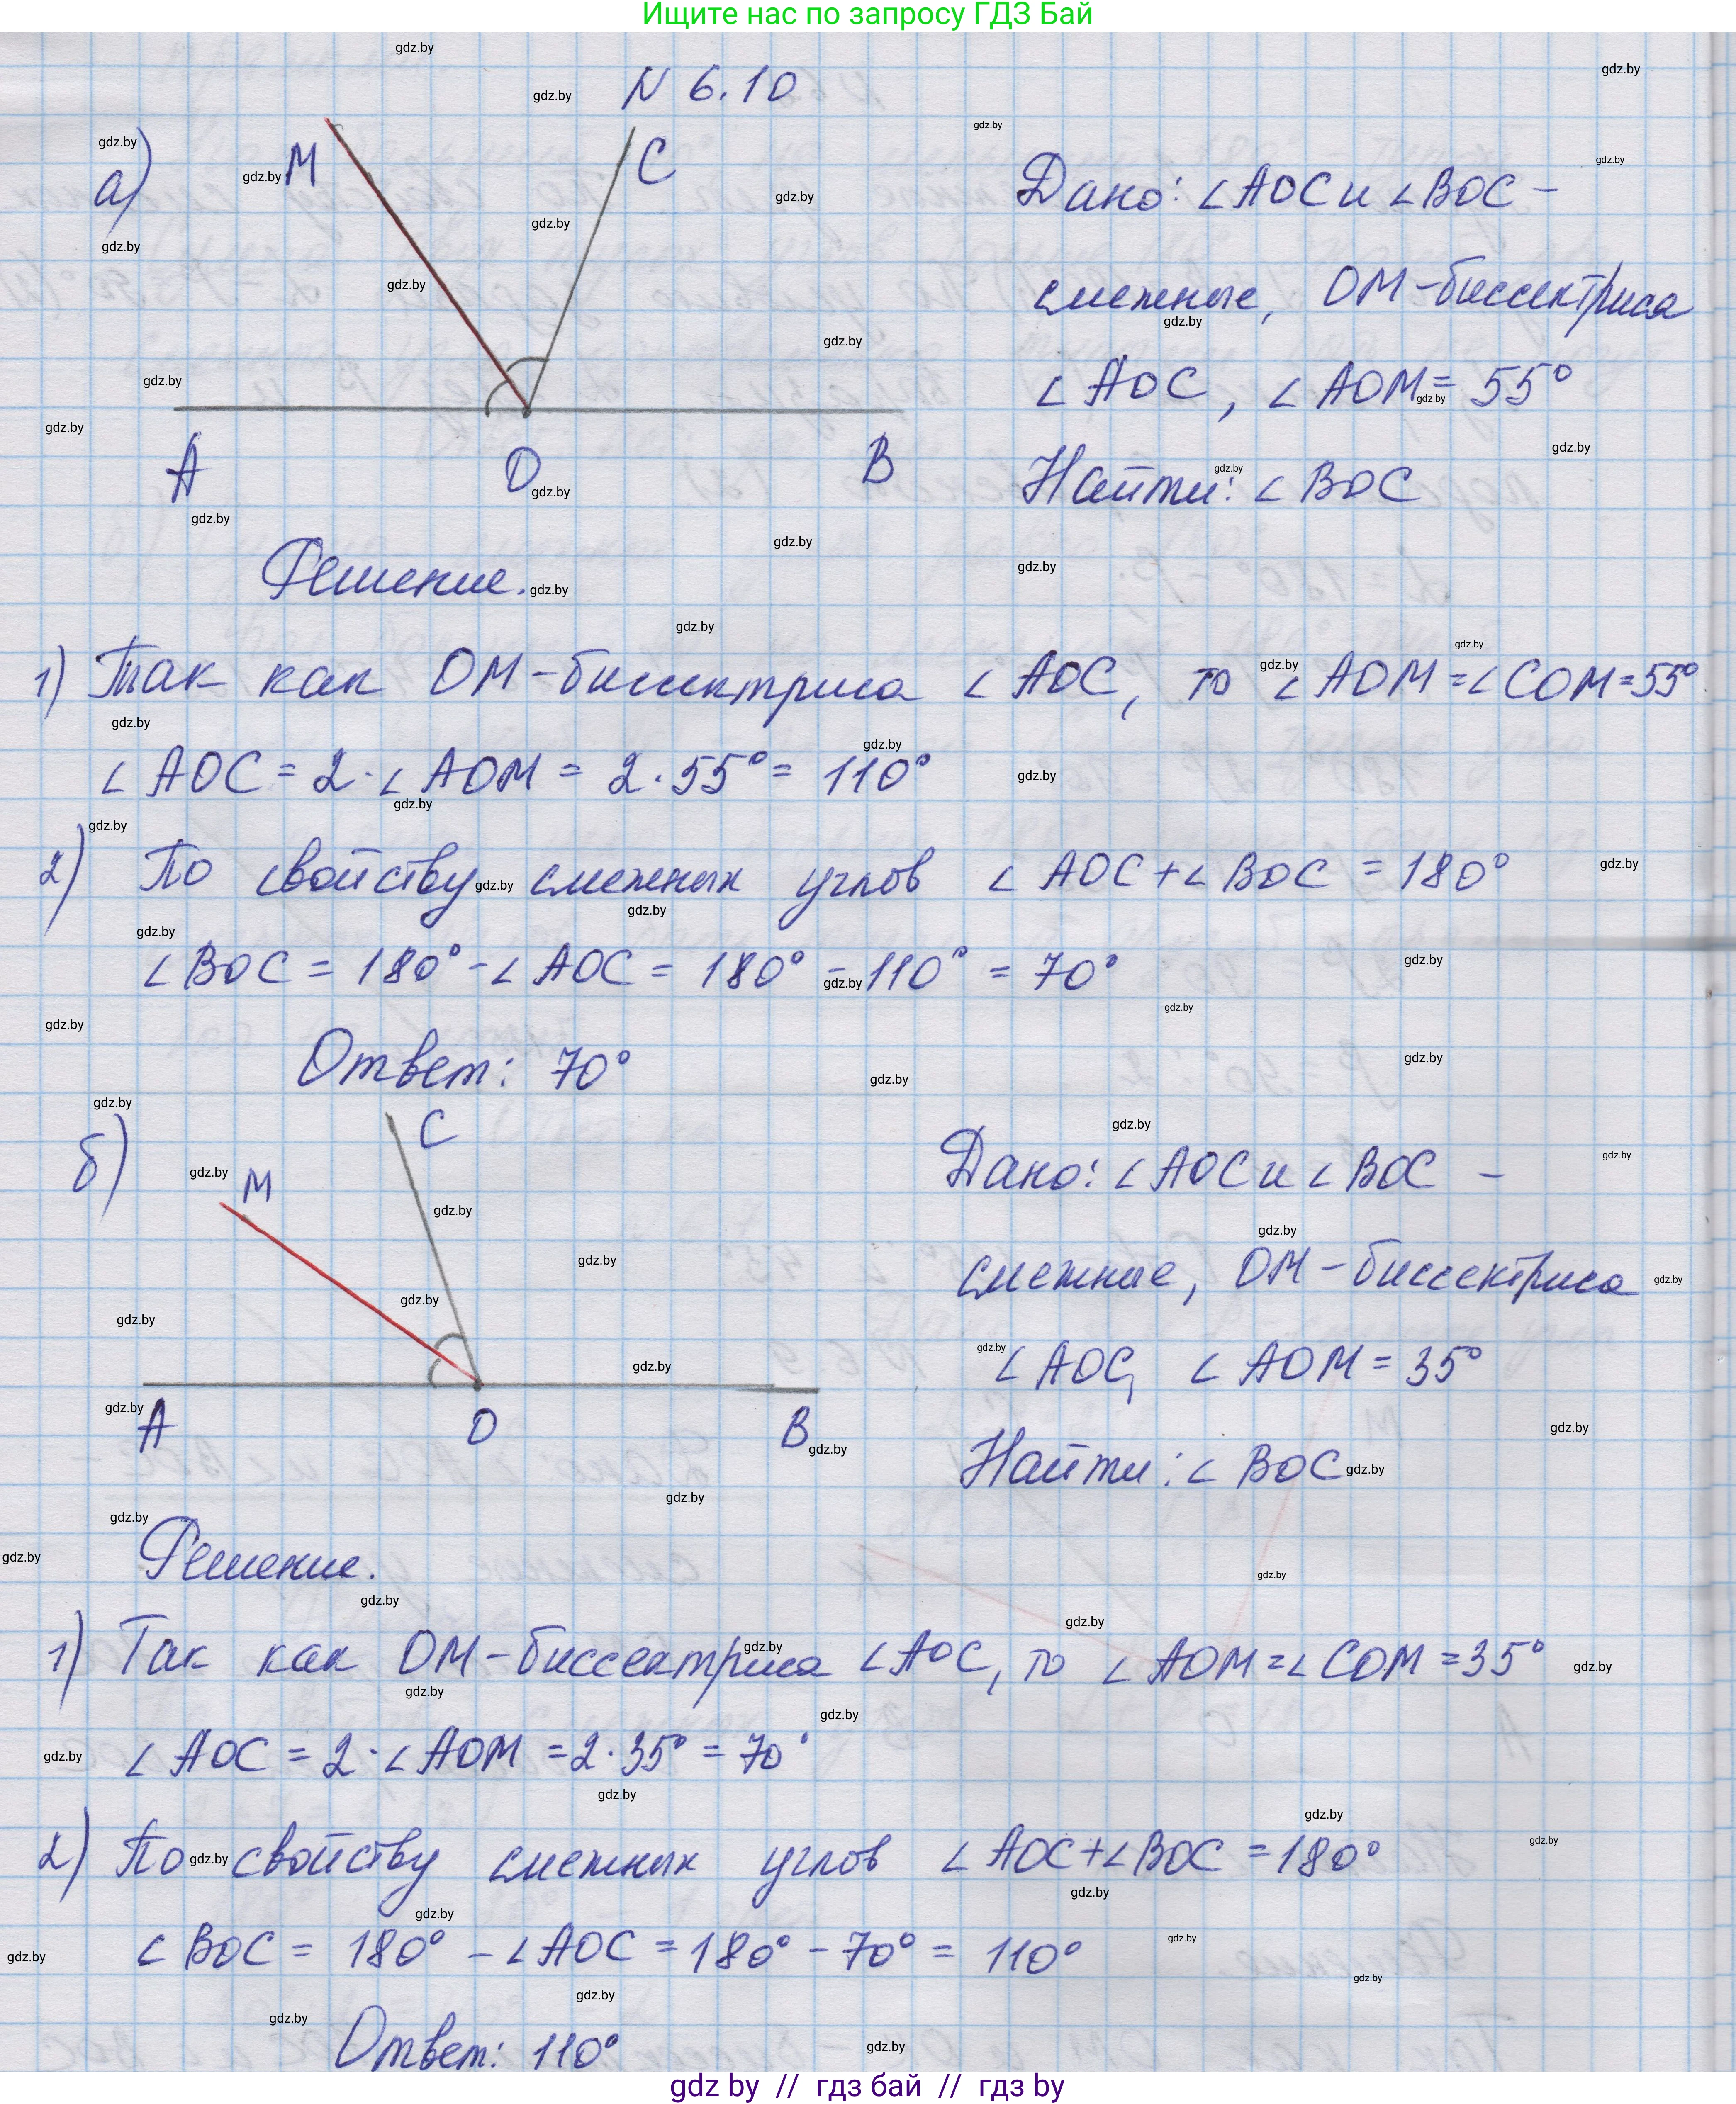 Ищите нас по запросу ГДЗ Бай
N 6.10
а)
M
C
A
O
B
Дано: ∠AOC и ∠BOC –
смежные, OM – биссектриса
∠AOC, ∠AOM = 55°
Найти: ∠BOC
Решение.
1) Так как OM – биссектриса ∠AOC, то ∠AOM = ∠COM = 55°
∠AOC = 2 · ∠AOM = 2 · 55° = 110°
2) По свойству смежных углов ∠AOC + ∠BOC = 180°
∠BOC = 180° - ∠AOC = 180° - 110° = 70°
Ответ: 70°
б)
M
C
A
O
B
Дано: ∠AOC и ∠BOC –
смежные, OM – биссектриса
∠AOC, ∠AOM = 35°
Найти: ∠BOC
Решение.
1) Так как OM – биссектриса ∠AOC, то ∠AOM = ∠COM = 35°
∠AOC = 2 · ∠AOM = 2 · 35° = 70°
2) По свойству смежных углов ∠AOC + ∠BOC = 180°
∠BOC = 180° - ∠AOC = 180° - 70° = 110°
Ответ: 110°
gdz by // гдз бай // гдз by